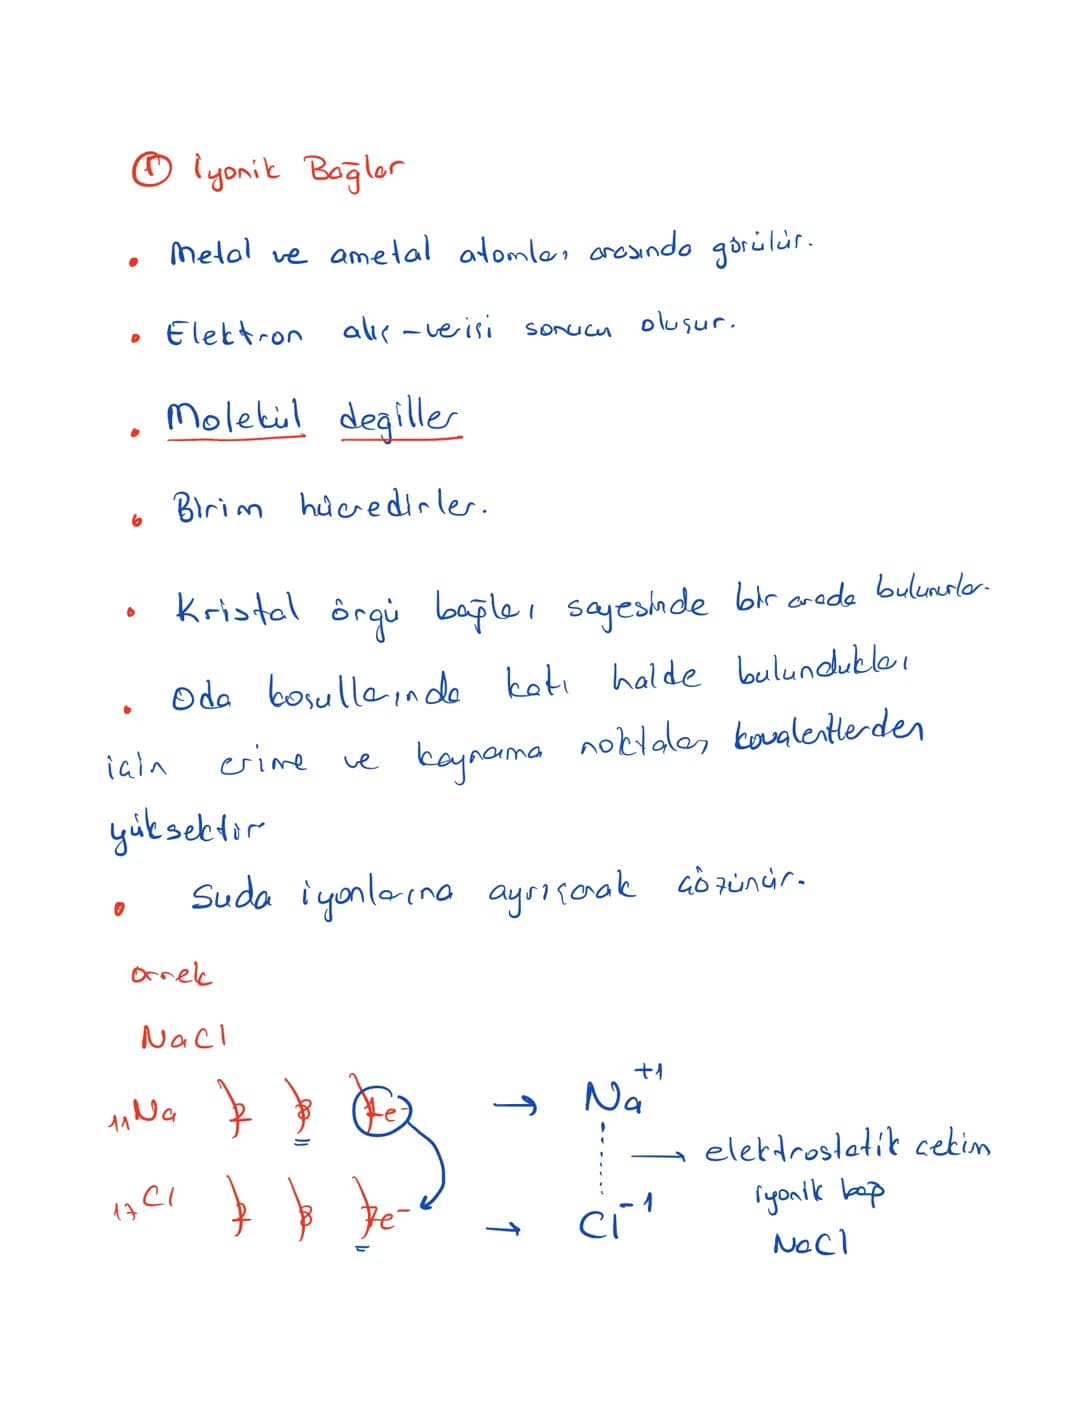 ① İyonik Bağlar
• Metal ve ametal atomları arasında görülür.
• Elektron alış-verişi sonucu oluşur.
• Molekül değiller
• Birim hücredirler.
• Kristal örgü bağları sayesinde bir arada bulunurlar.
• Oda koşullarında katı halde bulundukları
için erime ve kaynama noktaları kovalentlerden
yüksektir
• Suda iyonlarına ayrışarak çözünür.
örnek
NaCl
₁₁Na 2 8 1e- → Na⁺¹
→ elektrostatik çekim
iyonik bağ
₁₇Cl 2 8 7e⁻ → Cl⁻¹
NaCl